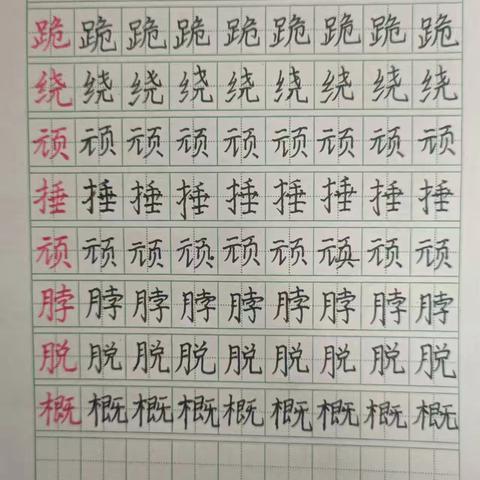 跪跪跪跪跪跪跪跪跪
绕绕绕绕绕绕绕绕绕
顽顽顽顽顽顽顽顽顽
捶捶捶捶捶捶捶捶捶
顽顽顽顽顽顽顽顽顽
脖脖脖脖脖脖脖脖脖
脱脱脱脱脱脱脱脱脱
概概概概概概概概概